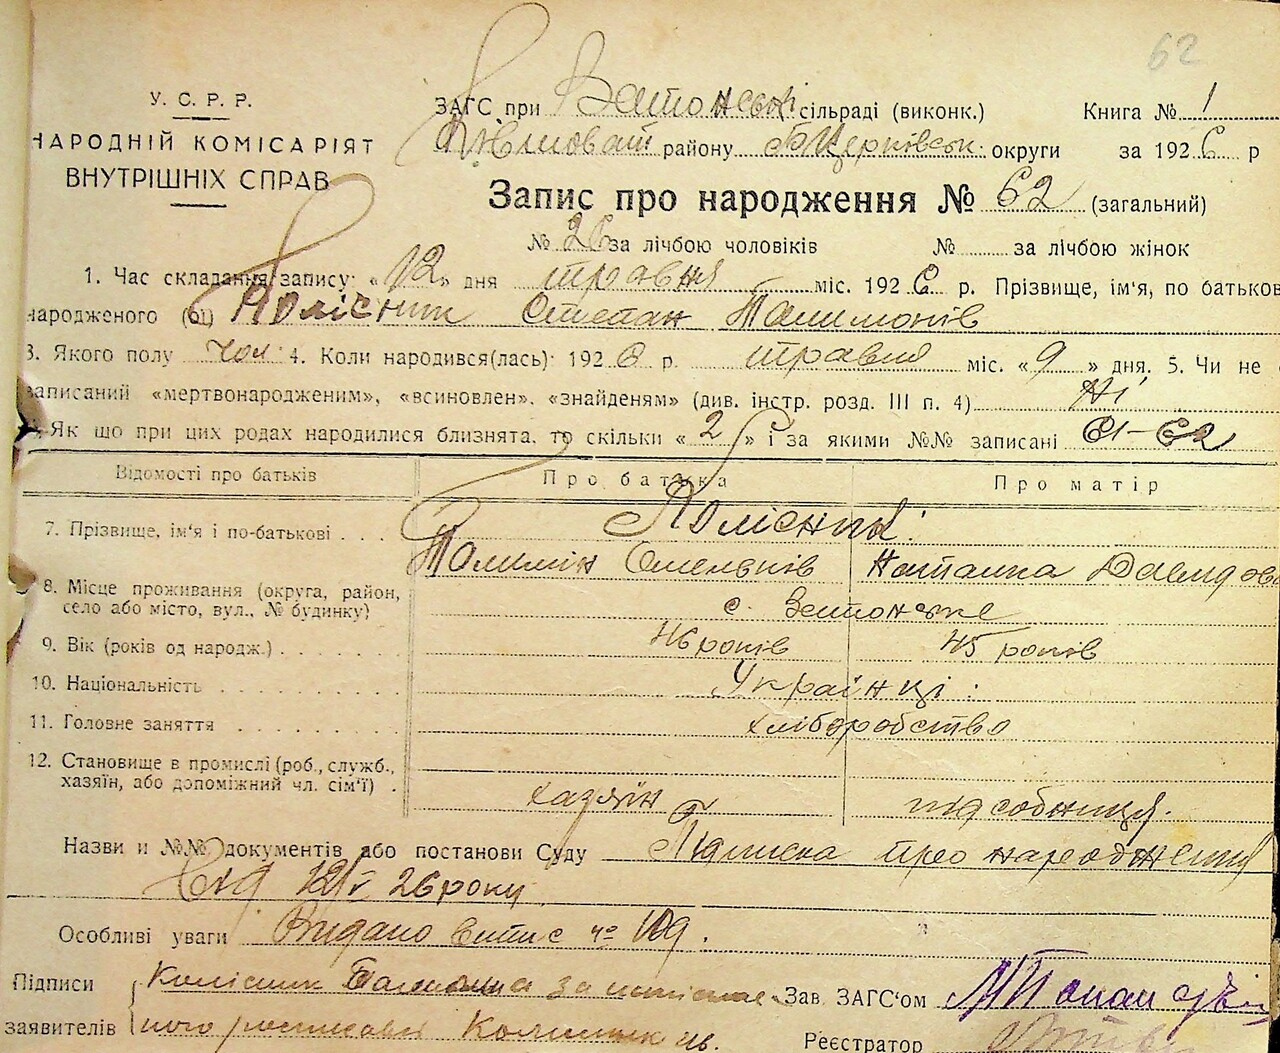 62
У. С. Р. Р.
НАРОДНІЙ КОМІСАРІЯТ
ВНУТРІШНІХ СПРАВ
ЗАГС при сільраді (виконк.) Книга № 1
району Б Церківськ. округи за 1926 р
Запис про народження № 62 (загальний)
№ 26 за лічбою чоловіків № за лічбою жінок
1. Час складання запису: «12» дня травня міс. 1926 р. Прізвище, ім'я, по батькові
народженого (ої) Колісник Степан
3. Якого полу чол. 4. Коли народився(лась): 1926 р. травня міс. «9» дня. 5. Чи не
записаний «мертвонародженим», «всиновлен», «знайденям» (див. інстр. розд. III п. 4) Ні
Як що при цих родах народилися близнята, то скільки «2» і за якими №№ записані 61-62
Відомості про батьків Про батька Про матір
7. Прізвище, ім'я і по-батькові . . . Колісник
Омельків Наталка Давидова
8. Місце проживання (округа, район,
село або місто, вул., № будинку) с.
9. Вік (років од народж.) . . . . . . 46 років 45 років
10. Національність . . . . . . . . . . Українці.
11. Головне заняття . . . . . . . . . хліборобство
12. Становище в промислі (роб., служб.,
хазяїн, або допоміжний чл. сім'ї) . хазяїн підсобниця.
Назви и №№ документів або постанови Суду Підписка про народження
Від 12/V 26 року
Особливі уваги Видано витис № 109.
Підписи Колісник за Зав. ЗАГС'ом
заявителів Реєстратор